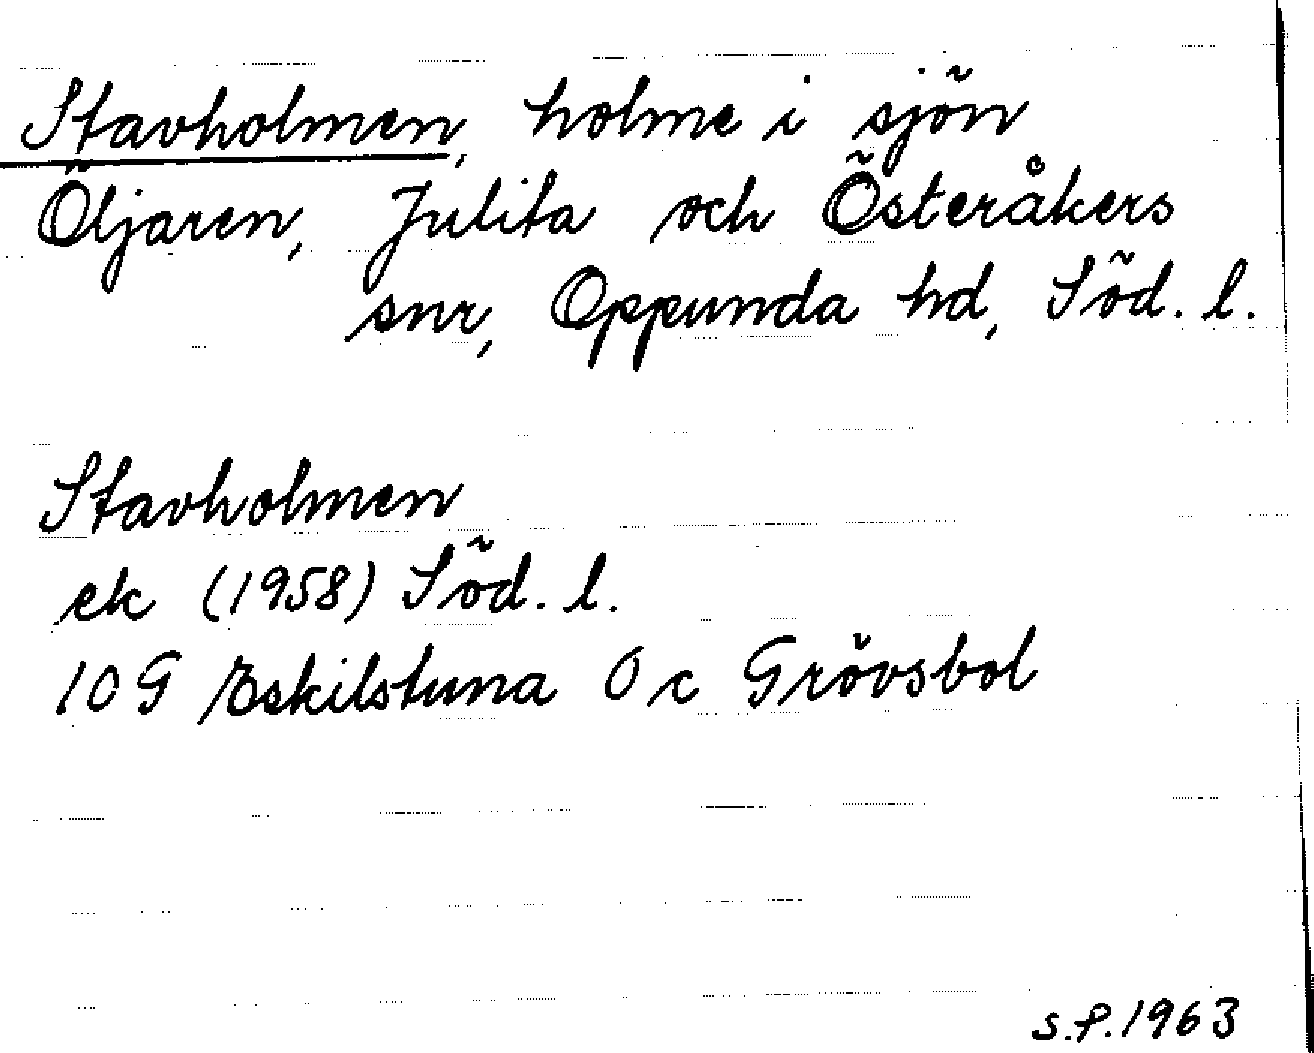 Stavholmen, holme i sjön
Öljaren, Julita och Österåkers
snr, Oppunda hd, Söd. l.
Stavholmen
ek (1958) Söd. l.
10 G Eskilstuna 0 c Grövsbol
S.P. 1963